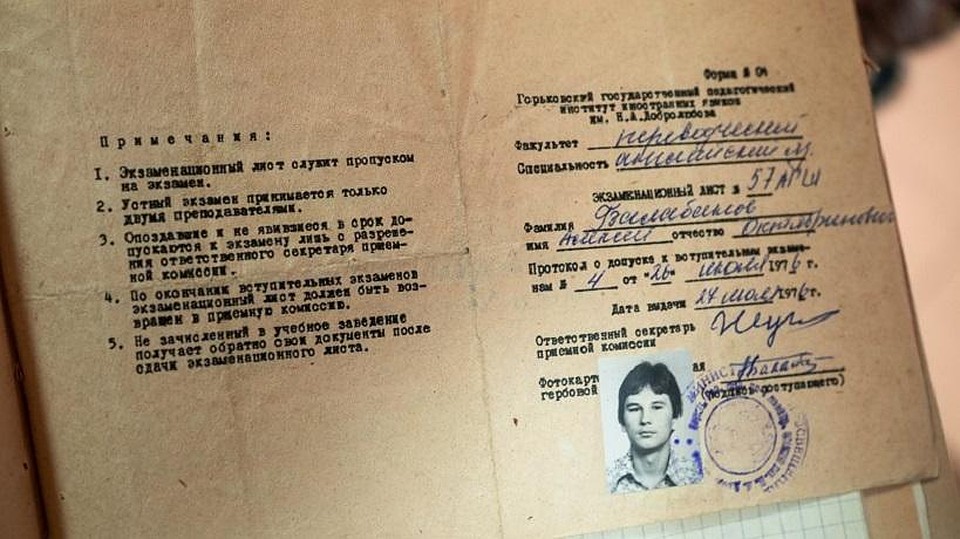 Примечания:
1. Экзаменационный лист служит пропуском
на экзамен.
2. Устный экзамен принимается только
двумя преподавателями.
3. Опоздавшие и не явившиеся в срок до-
пускаются к экзамену лишь с разреше-
ния ответственного секретаря прием-
ной комиссии.
4. По окончании вступительных экзаменов
экзаменационный лист должен быть воз-
вращен в приемную комиссию.
5. Не зачисленный в учебное заведение
получает обратно свои документы после
сдачи экзаменационного листа.
Форма № 04
Горьковский государственный педагогический
институт иностранных языков
им. Н.А.Добролюбова
Факультет переводческий
Специальность английский яз.
ЭКЗАМЕНАЦИОННЫЙ ЛИСТ № 57
Фамилия Балабанов
имя Алексей отчество Октябринович
Протокол о допуске к вступительным экзаме-
нам № 4 от "26" июля 1976 г.
Дата выдачи 27 июля 1976г.
Ответственный секретарь
приемной комиссии
Фотокарт ая
гербовой (подпись поступающего)